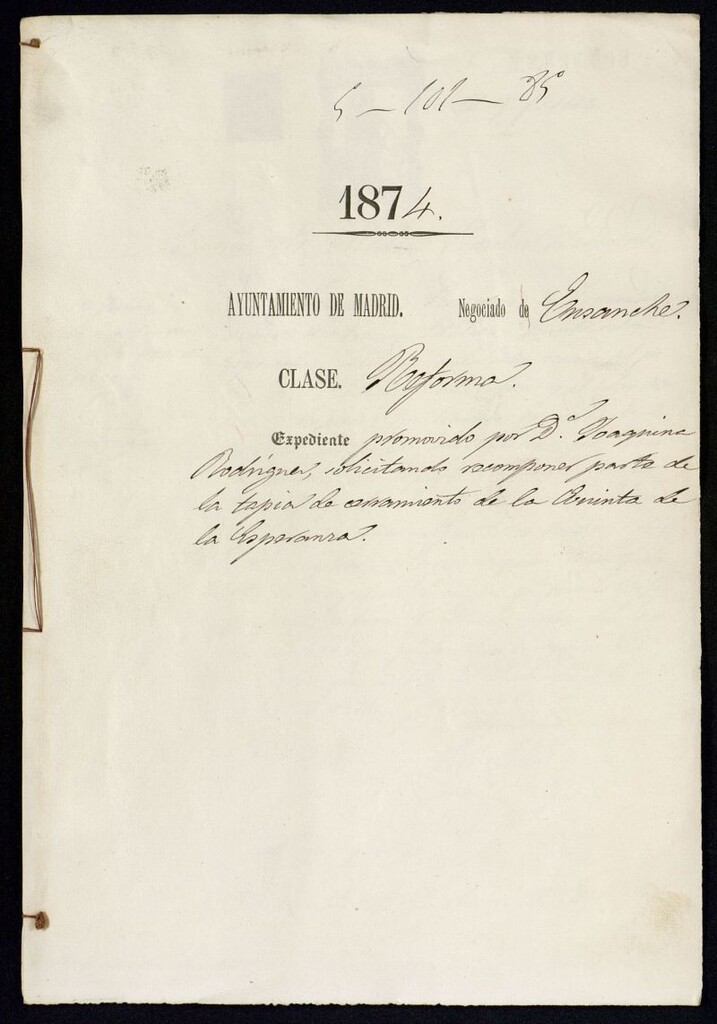 5 - 101 - 85
1874.
AYUNTAMIENTO DE MADRID. Negociado de Ensanche.
CLASE. Reforma.
Expediente promovido por D.ª Joaquina
Rodriguez, solicitando recomponer parte de
la tapia de cerramiento de la Quinta de
la Esperanza.